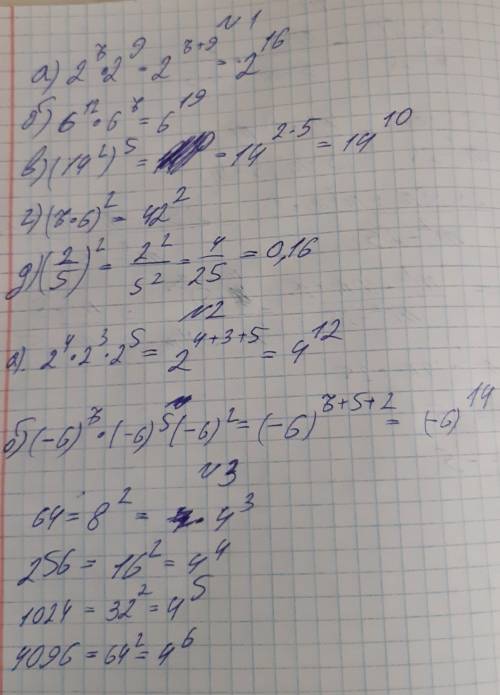 №1
а) 2^7 · 2^9 = 2^(7+9) = 2^16
б) 6^12 · 6^7 = 6^19
в) (14^2)^5 = 14^(2·5) = 14^10
г) (7·6)^2 = 42^2
д) (2/5)^2 = 2^2/5^2 = 4/25 = 0,16
№2
а). 2^4 · 2^3 · 2^5 = 2^(4+3+5) = 4^12
б) (-6)^7 · (-6)^5 (-6)^2 = (-6)^(7+5+2) = (-6)^14
№3
64 = 8^2 = 4^3
256 = 16^2 = 4^4
1024 = 32^2 = 4^5
4096 = 64^2 = 4^6